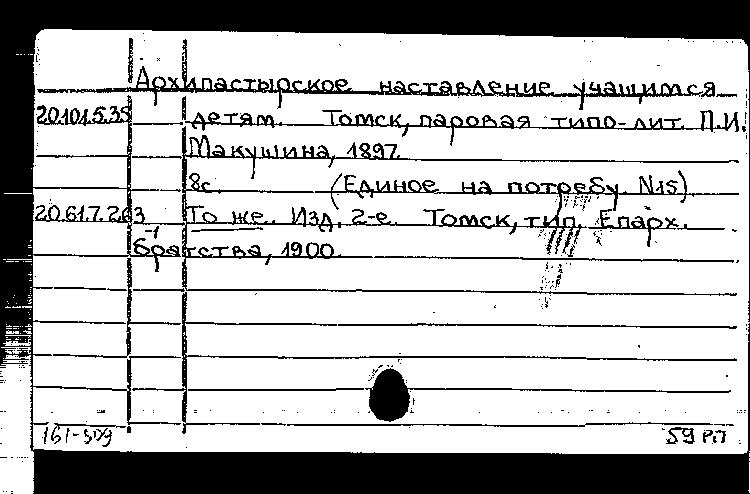 Архипастырское наставление учащимся
20.101.5.35 детям. Томск, паровая типо-лит. П.И.
Макушина, 1897.
8с. (Единое на потребу. N15).
20.61.7.263 То же. Изд. 2-е. Томск, тип. Епарх.
братства, 1900.
161-509 59 РП